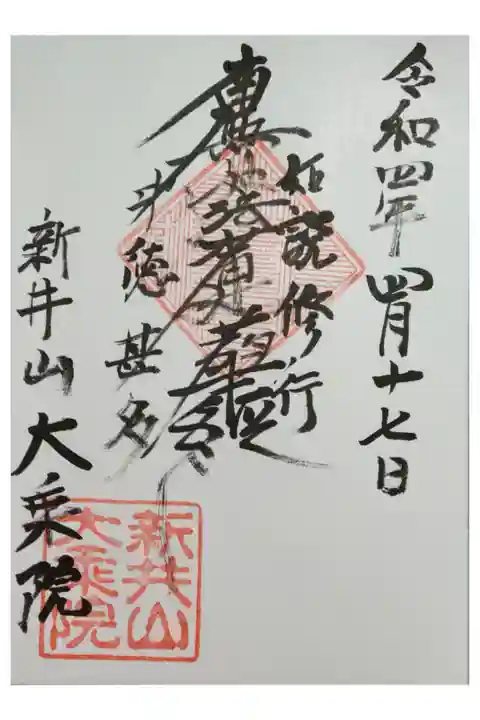 令和四年四月十七日
如説修行
功徳甚多
新井山大乗院
新井山
大乗院